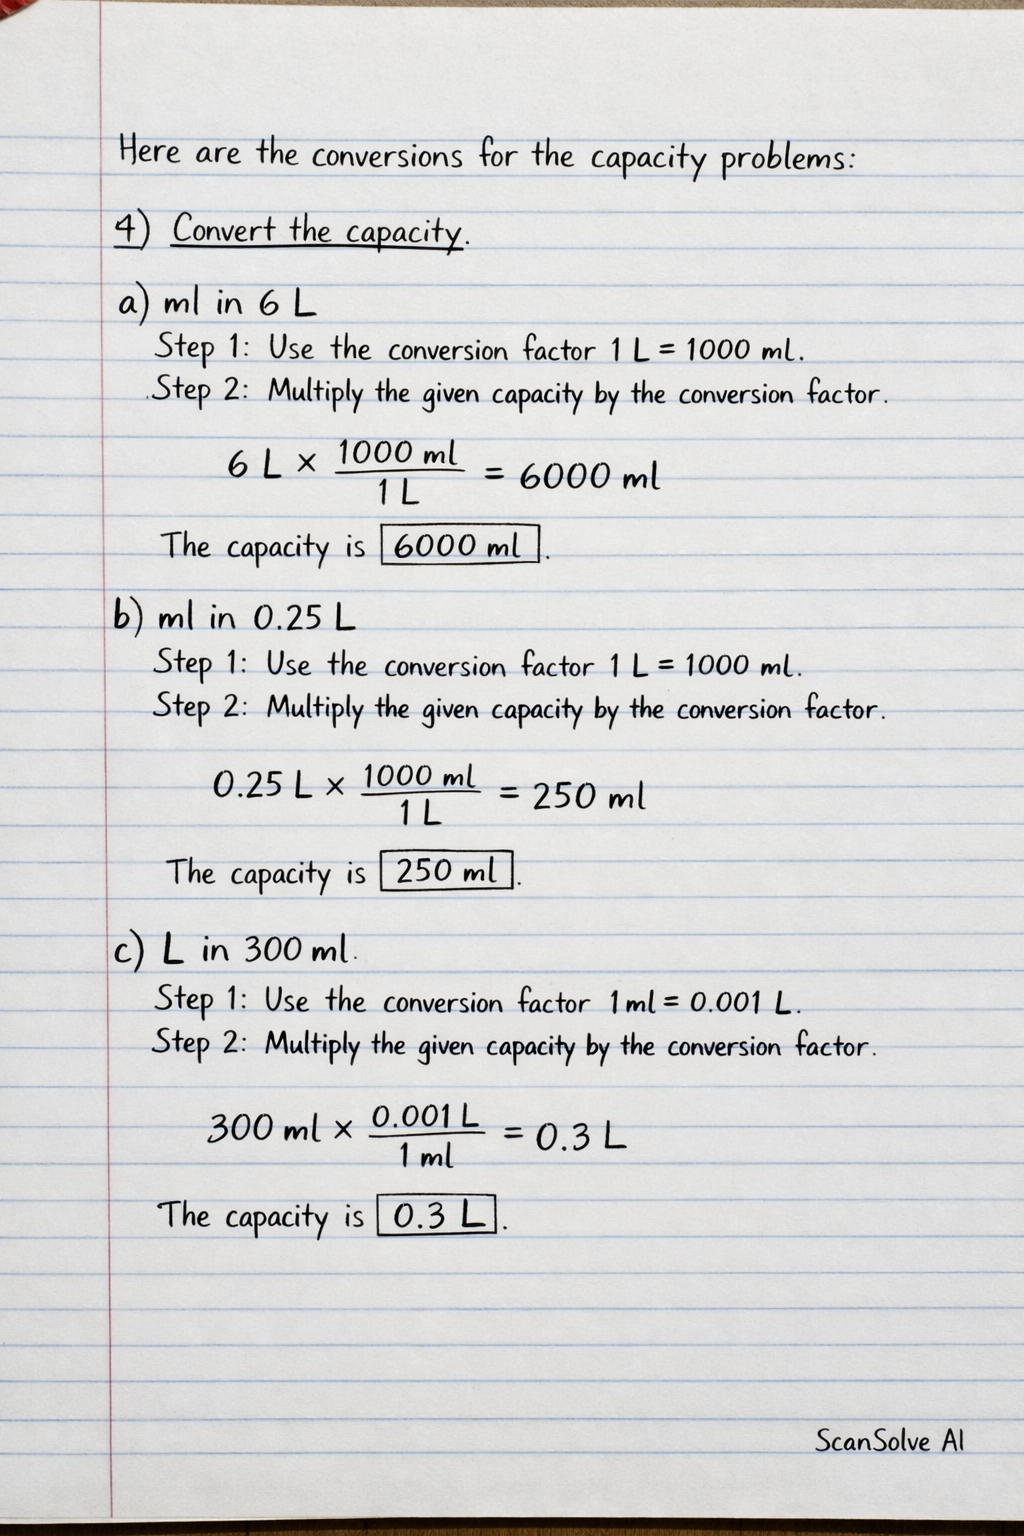 Here are the conversions for the capacity problems:
4) Convert the capacity.
a) ml in 6 L
Step 1: Use the conversion factor 1 L = 1000 ml.
Step 2: Multiply the given capacity by the conversion factor.
6 L × 1000 ml / 1 L = 6000 ml
The capacity is 6000 ml.
b) ml in 0.25 L
Step 1: Use the conversion factor 1 L = 1000 ml.
Step 2: Multiply the given capacity by the conversion factor.
0.25 L × 1000 ml / 1 L = 250 ml
The capacity is 250 ml.
c) L in 300 ml.
Step 1: Use the conversion factor 1 ml = 0.001 L.
Step 2: Multiply the given capacity by the conversion factor.
300 ml × 0.001 L / 1 ml = 0.3 L
The capacity is 0.3 L.
ScanSolve AI